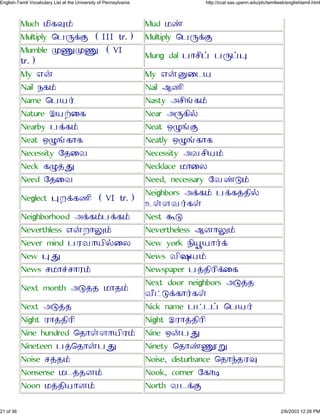 English-Tamil Vocabulary List at the University of Pennsylvania
http://ccat.sas.upenn.edu/plc/tamilweb/english/taml.html
Much மிகவும் Mud மண்
Multiply பெருக்கு ( III tr. ) Multiply பெருக்கு
Mumble முணுமுணு ( VI tr. ) Mung dal பாசிப் பருப்பு
My என் My என்னுடைய
Nail நகம் Nail ஆணி
Name பெயர் Nasty அசிங்கம்
Nature இயற்கை Near அருகில்
Nearby பக்கம் Neat ஒழுங்கு
Neat ஒழுங்காக Neatly ஒழுங்காக
Necessity தேவை Necessity அவசியம்
Neck கழுத்து Necklace மாலை
Need தேவை Need, necessary வேண்டும்
Neglect புறக்கணி ( VI tr. ) Neighbors அக்கம் பக்கத்தில் உள்ளவர்கள்
Neighborhood அக்கம்பக்கம் Nest கூடு
Neverthless என்றாலும் Nevertheless ஆனாலும்
Never mind பரவாயில்லை New york நியூயார்க்
New புது News விஷயம்
News சமாச்சாரம் Newspaper பத்திரிக்கை
Next month அடுத்த மாதம் Next door neighbors அடுத்த வீட்டுக்காரர்கள்
Next அடுத்த Nick name பட்டப் பெயர்
Night ராத்திரி Night இராத்திரி
Nine hundred தொள்ளாயிரம் Nine ஒன்பது
Nineteen பத்தொன்பது Ninety தொண்ணூறு
Noise சத்தம் Noise, disturbance தொந்தரவு
Nonsense மடத்தனம் Nook, corner கோடி
Noon மத்தியானம் North வடக்கு
21 of 36
2/6/2003 12:28 PM